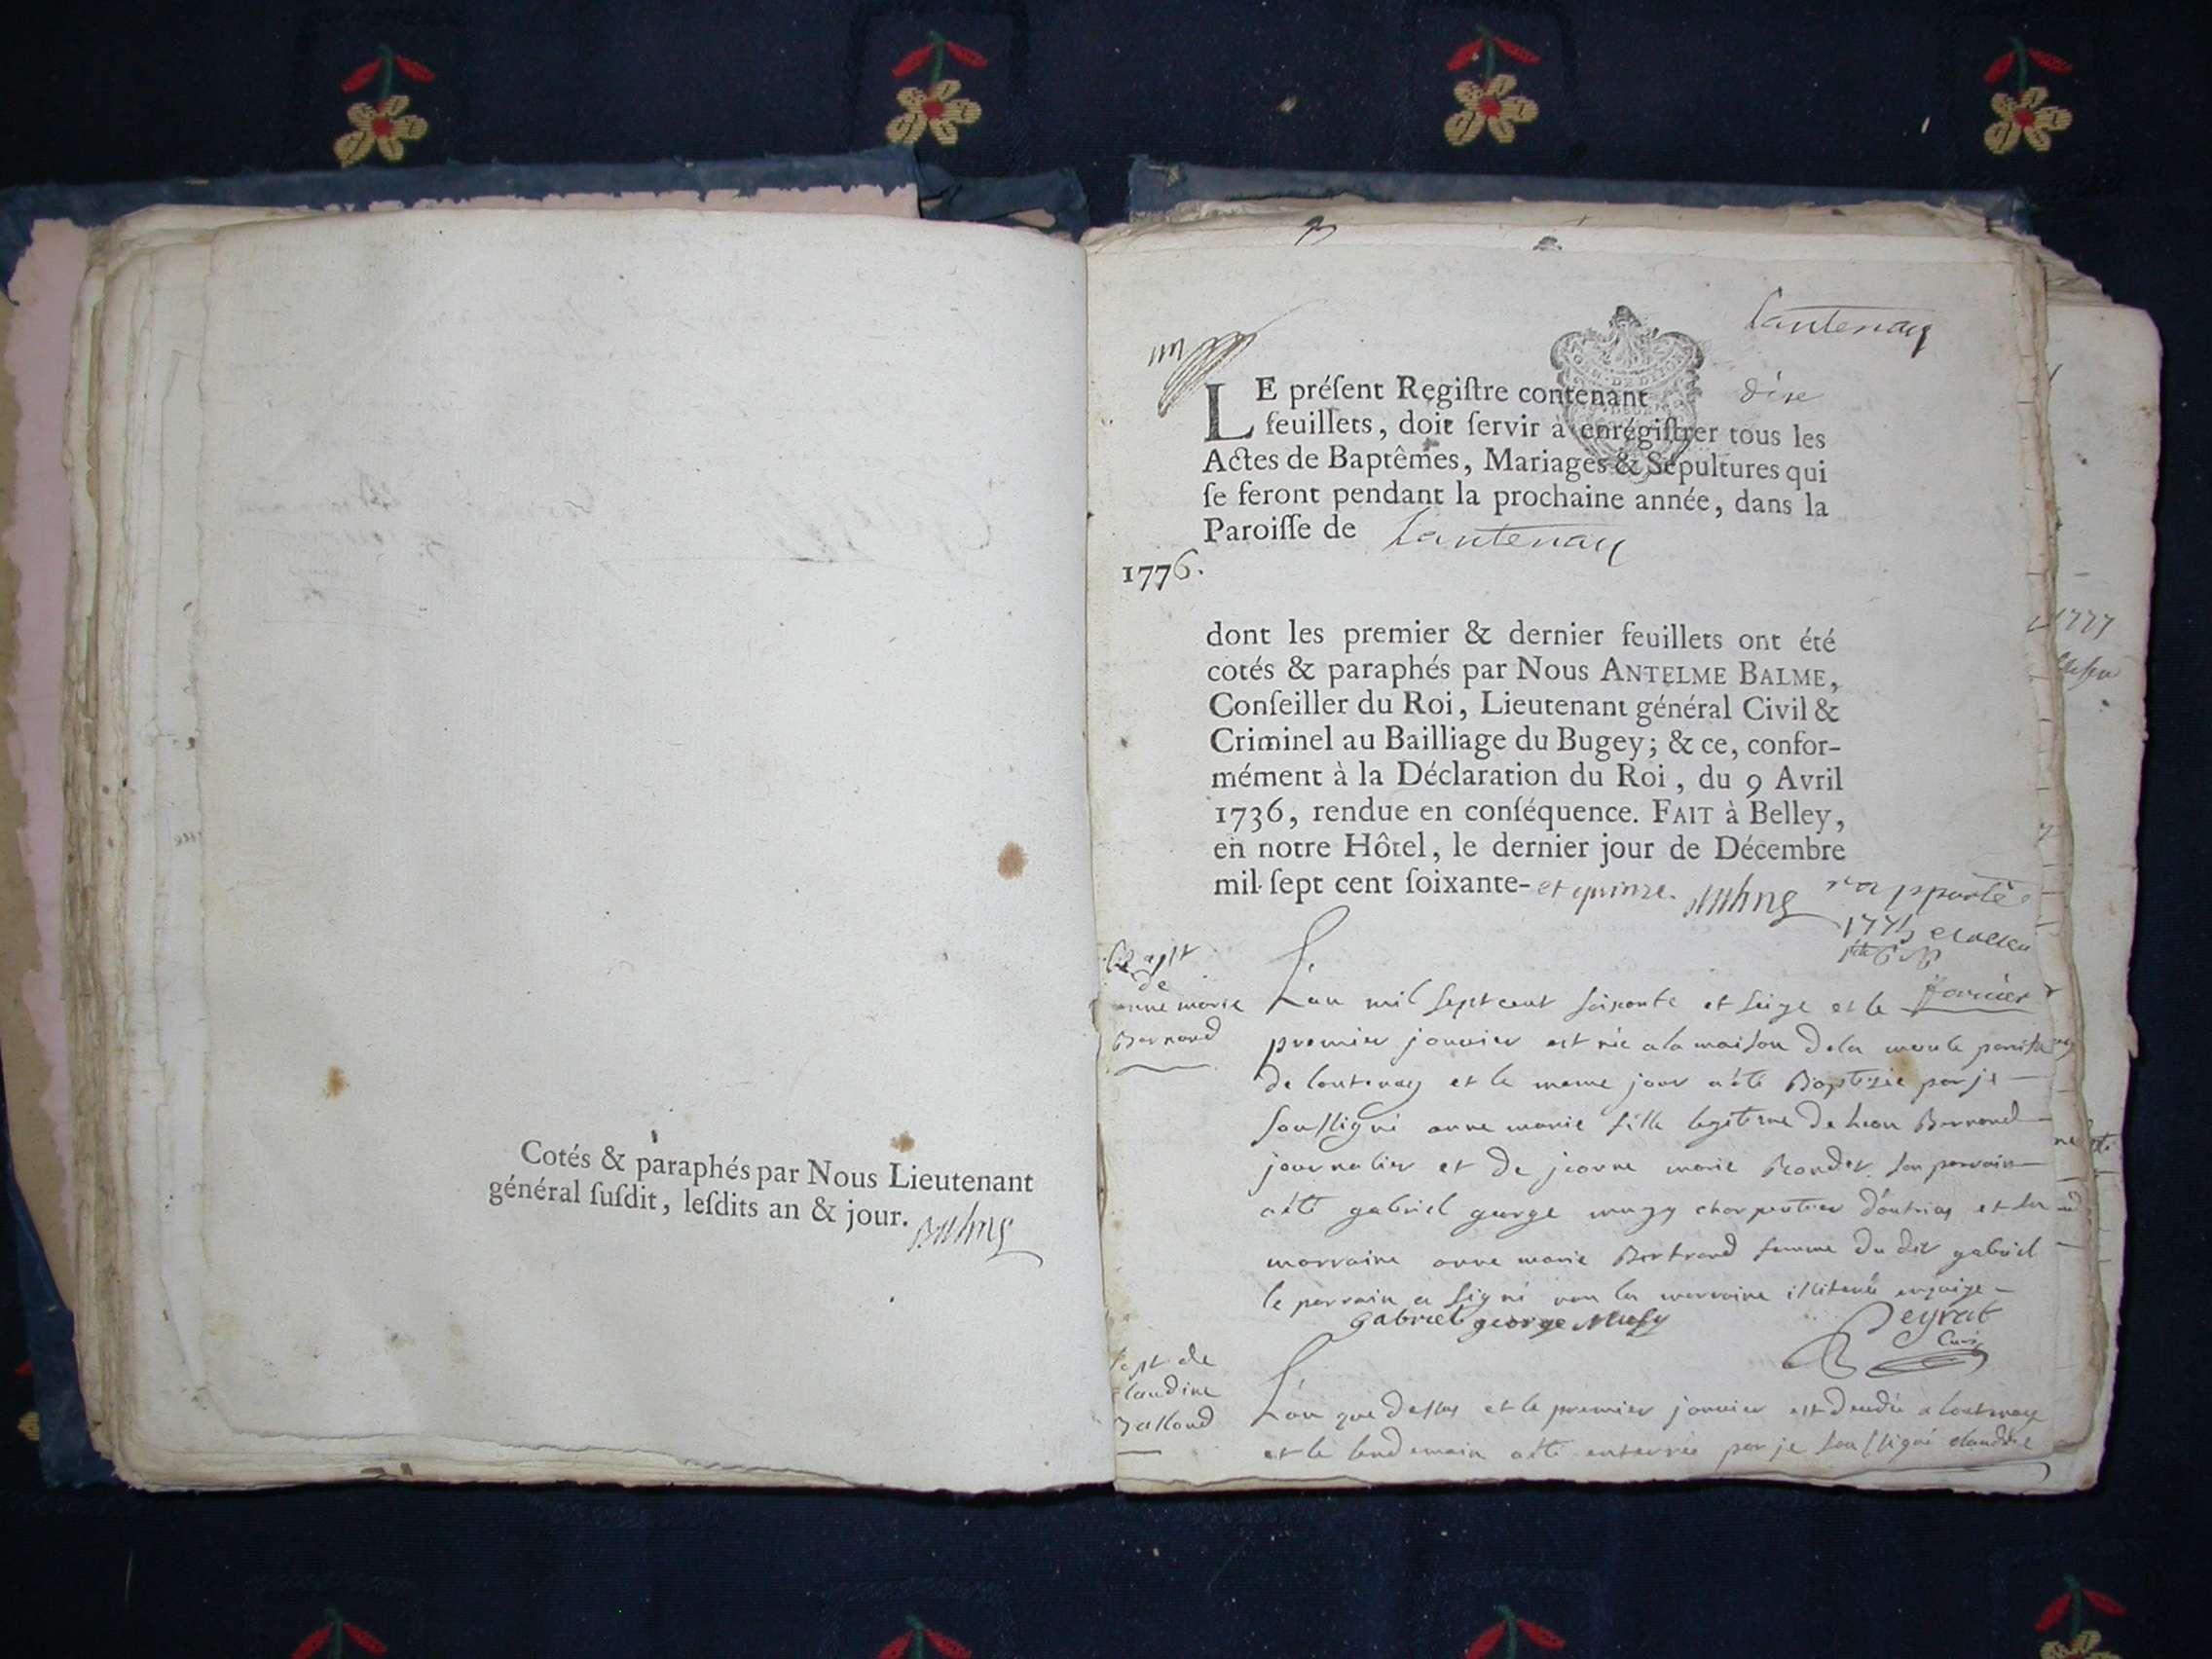 Cotés & paraphés par Nous Lieutenant
général ſuſdit, leſdits an & jour.
Lantenay
LE préſent Regiſtre contenant dixe
feuillets, doit ſervir à enrégiſtrer tous les
Actes de Baptêmes, Mariages & Sépultures qui
ſe feront pendant la prochaine année, dans la
Paroiſſe de Lantenay
1776.
dont les premier & dernier feuillets ont été
cotés & paraphés par Nous ANTELME BALME,
Conſeiller du Roi, Lieutenant général Civil &
Criminel au Bailliage du Bugey; & ce, confor-
mément à la Déclaration du Roi, du 9 Avril
1736, rendue en conſéquence. FAIT à Belley,
en notre Hôtel, le dernier jour de Décembre
mil ſept cent ſoixante- et quinze.
rapporté
Bapt
de
anne marie
Bernard
L'an mil sept cent soixante et seize et le
premier janvier est née a la maison de la
de lantenay et le meme jour a été Baptisée par je
soussigné anne marie fille legitime de Bernard
journalier et de jeanne marie son parrain
a été gabriel george muzy charpentier d'outriaz et sa
marraine anne marie Bertrand femme du dit gabriel
le parrain a signé non la marraine illiterée
gabriel george Musy
Peyrat
Curé
Sept de
claudine
L'an que dessus et le premier janvier est decedée a lantenay
et le lendemain a été enterrée par je soussigné claudine
1777